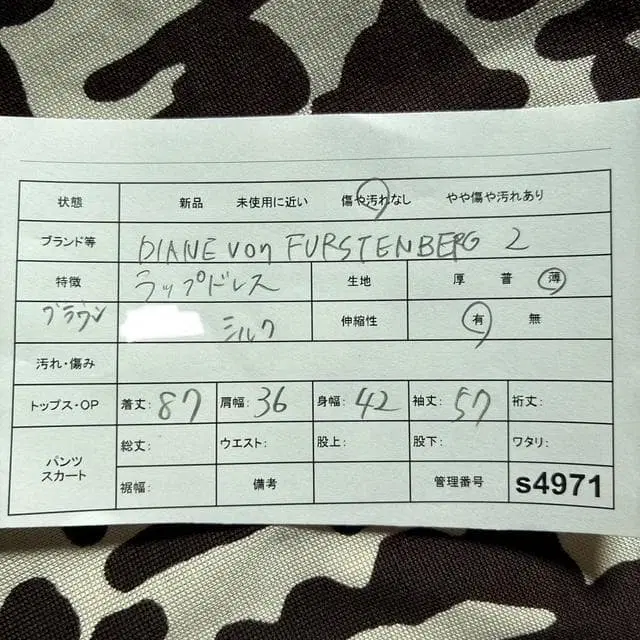 状態 新品 未使用に近い 傷や汚れなし やや傷や汚れあり
ブランド等 DIANE von FURSTENBERG 2
特徴 ラップドレス 生地 厚 普 薄
ブラウン シルク 伸縮性 有 無
汚れ・傷み
トップス・OP 着丈: 87 肩幅: 36 身幅: 42 袖丈: 57 裄丈:
パンツ スカート 総丈: ウエスト: 股上: 股下: ワタリ:
裾幅: 備考 管理番号 s4971